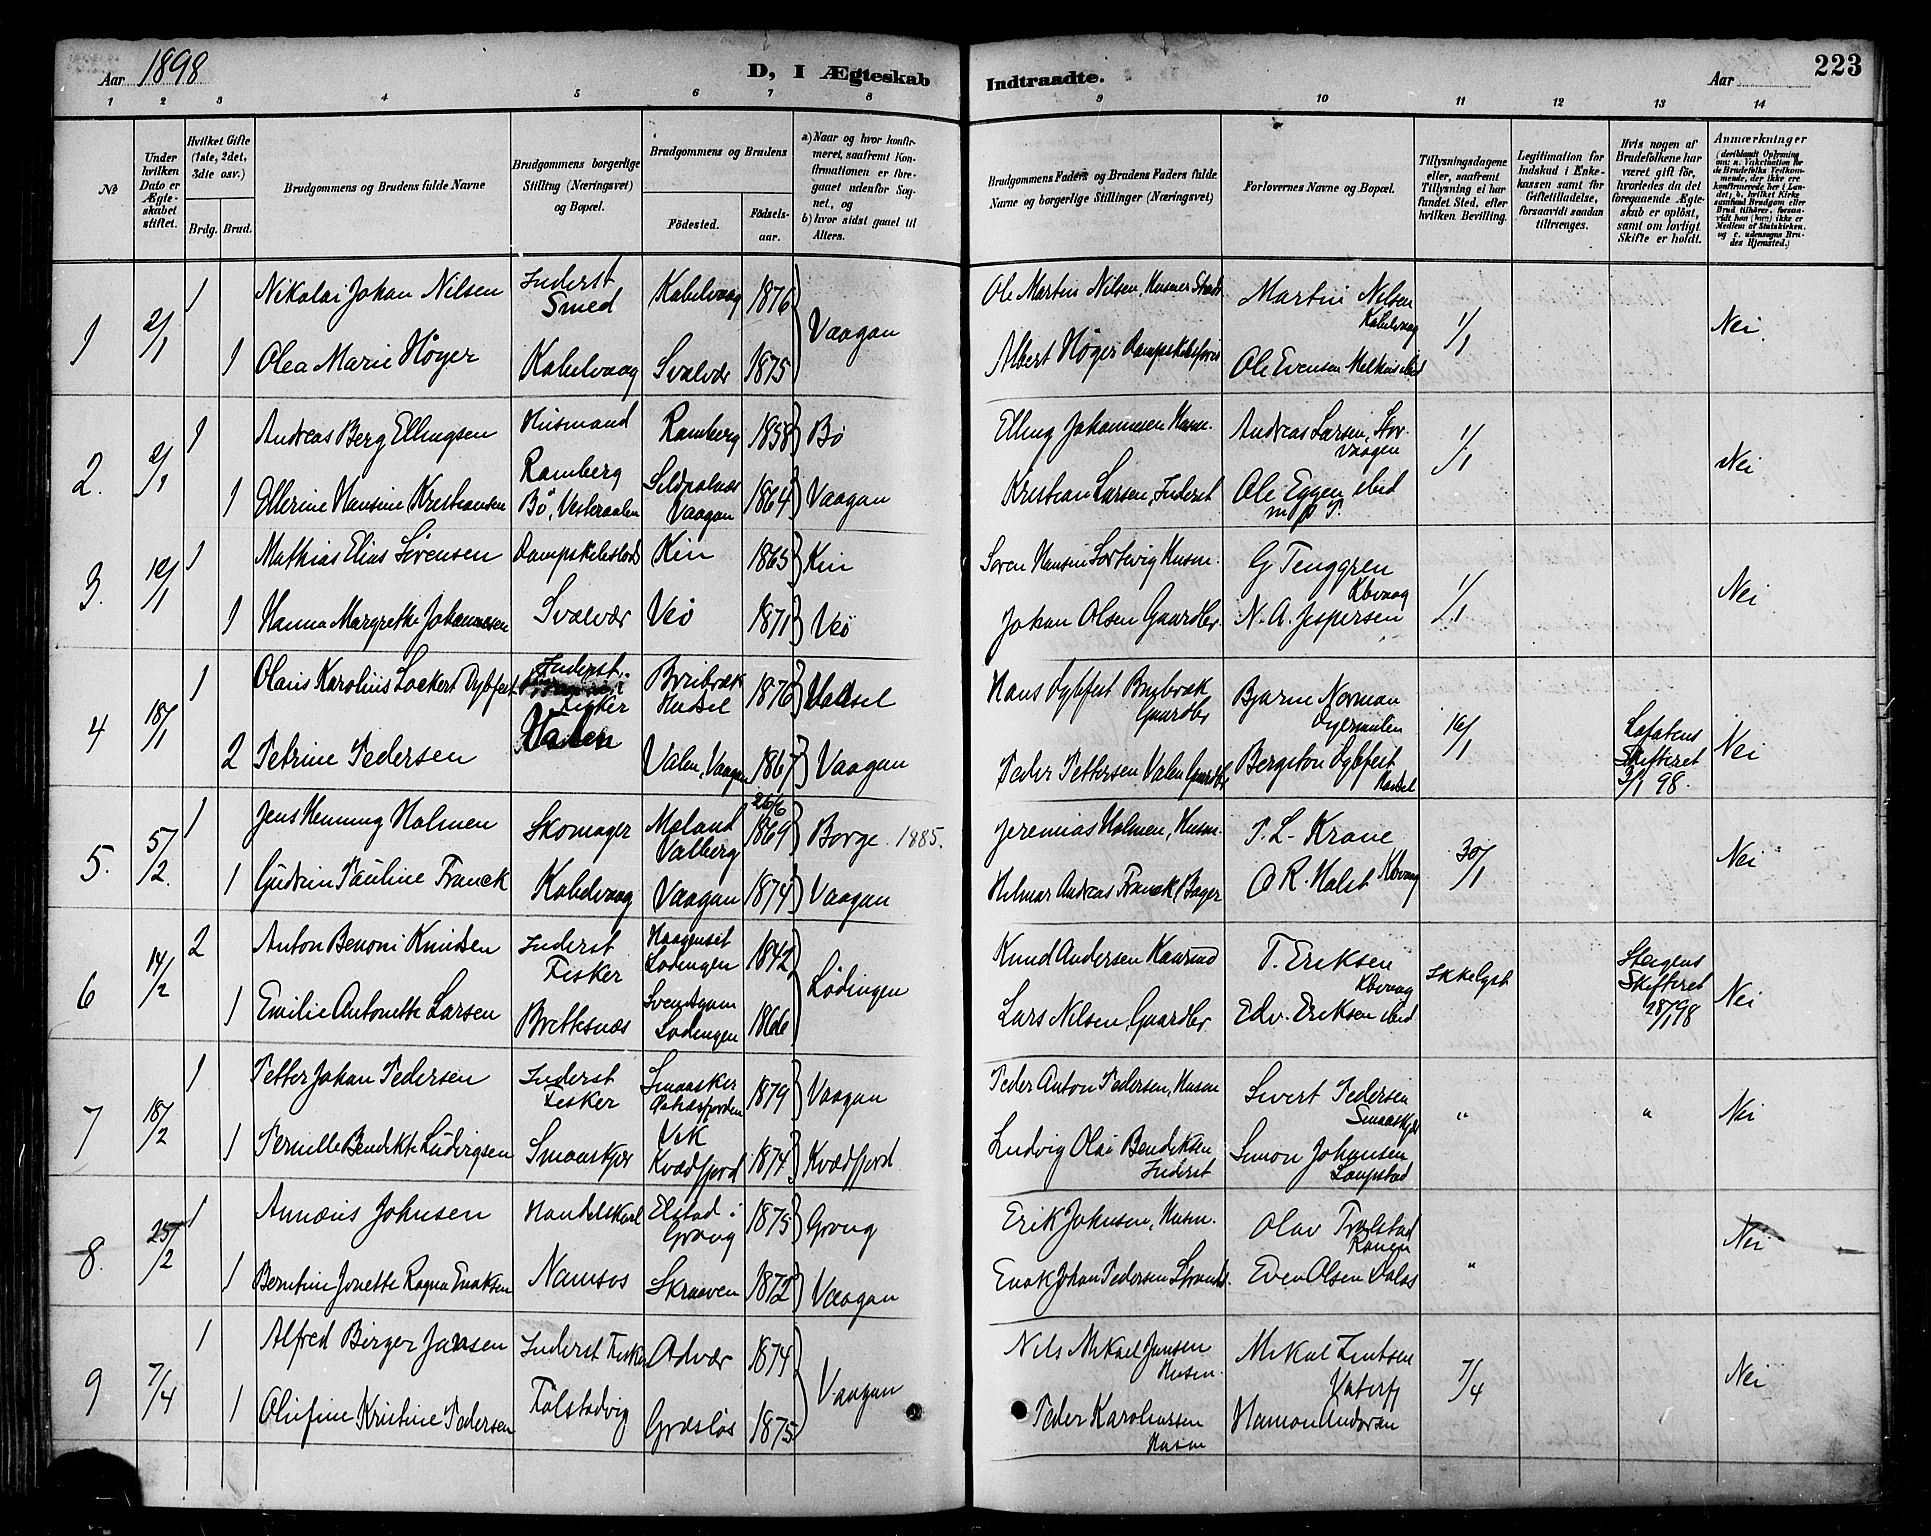 Aar 1898
D, I Ægteskab
Indtraadte.
Aar
223
1 2 3 4 5 6 7 8 9 10 11 12 13 14
No
Under hvilken Dato er Ægteskabet stiftet.
Hvilket Gifte (1ste, 2det, 3die osv.)
Brdg. Brud.
Brudgommens og Brudens fulde Navne
Brudgommens borgerlige Stilling (Næringsvei) og Bopæl.
Brudgommens og Brudens
Fødested.
Fødselsaar.
a) Naar og hvor konfirmeret, saafremt Konfirmationen er foregaaet udenfor Sognet, og
b) hvor sidst gaaet til Alters.
Brudgommens Faders og Brudens Faders fulde Navne og borgerlige Stillinger (Næringsvei)
Forlovernes Navne og Bopæl.
Tillysningsdagene eller, saafremt Tillysning ei har fundet Sted, efter hvilken Bevilling.
Legitimation for Indskud i Enkekassen samt for Giftetilladelse, forsaavidt saadan tiltrænges.
Hvis nogen af Brudefolkene har været gift før, hvorledes da det foregaaende Ægteskab er opløst, samt om lovligt Skifte er holdt.
Anmærkninger
(deriblandt Oplysning om: a. Vakcination for de Brudefolks Vedkommende, der ikke ere konfirmerede her i Landet; b. hvilket Kirkesamfund Brudgom eller Brud tilhører, forsaavidt han (hun) ikke er Medlem af Statskirken, og c. udensogns Brudes Hjemsted.)
1 2/1 1 Nikolai Johan Nilsen Inderst Smed Kabelvaag 1876 Vaagan Ole Martin Nilsen, Husmer Martin Nilsen Kabelvaag 1/1 Nei.
1 Olea Marie Höyer Kabelvaag Svolvær 1875 Albert Höyer Ole Evensen ibid
2. 2/1 1 Andreas Berg Ellingsen Husmand Ramberg 1858 Bö Elling Johannesen Husm. Andreas Larsen, Storvaagen 1/1 Nei
1 Ellerine Hansine Kristiansen Ramberg Bö, Vesteraalen Vaagan 1864 Vaagan Kristian Larsen, Inderst Ole Eggen ibid
3. 12/1 1 Mathias Elias Sörensen Kin 1865 Kin Sören Hansen Husm. G Tenggren Kbvaag 1/1 Nei
1 Hanna Margrethe Johannesen Svolvær Veö 1871 Veö Johan Olsen Gaardbr. N. A. Jespersen
4 18/1 1 Olaus Karolius Lockert Dybfest Inderst Fisker Valen Hadsel 1876 Hadsel Hans Dybfest Gaardbr Bjarne Norman Digermulen 16/1 Nei
2 Petrine Pedersen Valen, Vaagan 1867 Vaagan Peder Pettersen Valen Gaardbr Dybfest Hadsel Lofotens Skifteret 3/1 98.
5. 5/2. 1 Jens Henning Holmen Skomager Moland Valberg 26/6 1869 Borge. 1885. Jeremias Holmen, Husm. P. L. Krane 30/1 Nei
1 Gudrun Pauline Franck Kabelvaag Vaagan 1874 Vaagan Hilmar Andreas Franck (Bager O R. Holst Kbvaag
6 14/2 2 Anton Benoni Knudsen Inderst Fisker Lodingen 1842 Lødingen Knud Andersen T. Eriksen Kbvaag Ikke lyst Steigens Skifteret 28/1 98 Nei
1 Emilie Antonette Larsen Brettesnæs Lodingen 1866 Lars Nilsen, Gaardbr Edv. Eriksen ibid
7 18/2 1 Petter Johan Pedersen Inderst Fisker Smaasker 1879 Vaagan Peder Anton Pedersen, Husm Sivert Pedersen Smaaskjær " " Nei
1 Pernille Bendikte Ludvigsen Smaaskjær Vik Kvædfjord 1874 Kvædfjord Ludvig Olai Bendiktsen Inderst Simon Johansen Laupstad
8. 25/2 1 Annæus Johnsen Handelskarl Elstad i Grong 1875 Grong Erik Johnsen, Husm. Olav Tralstad Ranen " Nei
1 Berntine Jonette Ragna Enoksen Namsos Skraaven 1872 Vaagan Enok Johan Pedersen Even Olsen Dalos
9 7/4 1 Alfred Birger Jansen Inderst Fisker Odvær 1874 Vaagan Nils Mikael Jansen Husm. Mikal Lentsen 7/4 Nei
1 Olufine Kristine Pedersen Falstadvig Græsløs 1875 Peder Karoliussen Husm